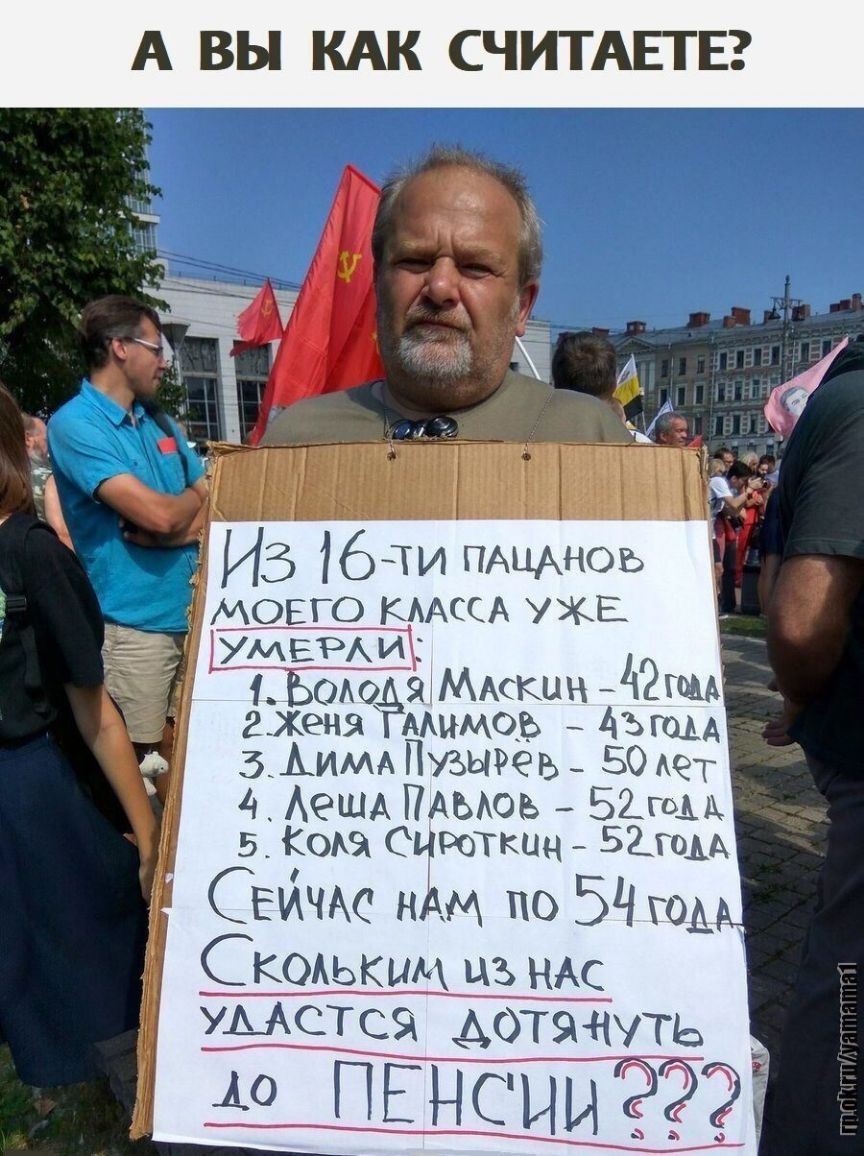 А ВЫ КАК СЧИТАЕТЕ?
Из 16-ти пацанов
моего класса уже
умерли:
1. Володя Маскин - 42 года
2. Женя Галимов - 43 года
3. Дима Пузырёв - 50 лет
4. Лёша Павлов - 52 года
5. Коля Сироткин - 52 года
Сейчас нам по 54 года
Скольким из нас
удастся дотянуть
до ПЕНСИИ???
m.ok.ru/yamama1